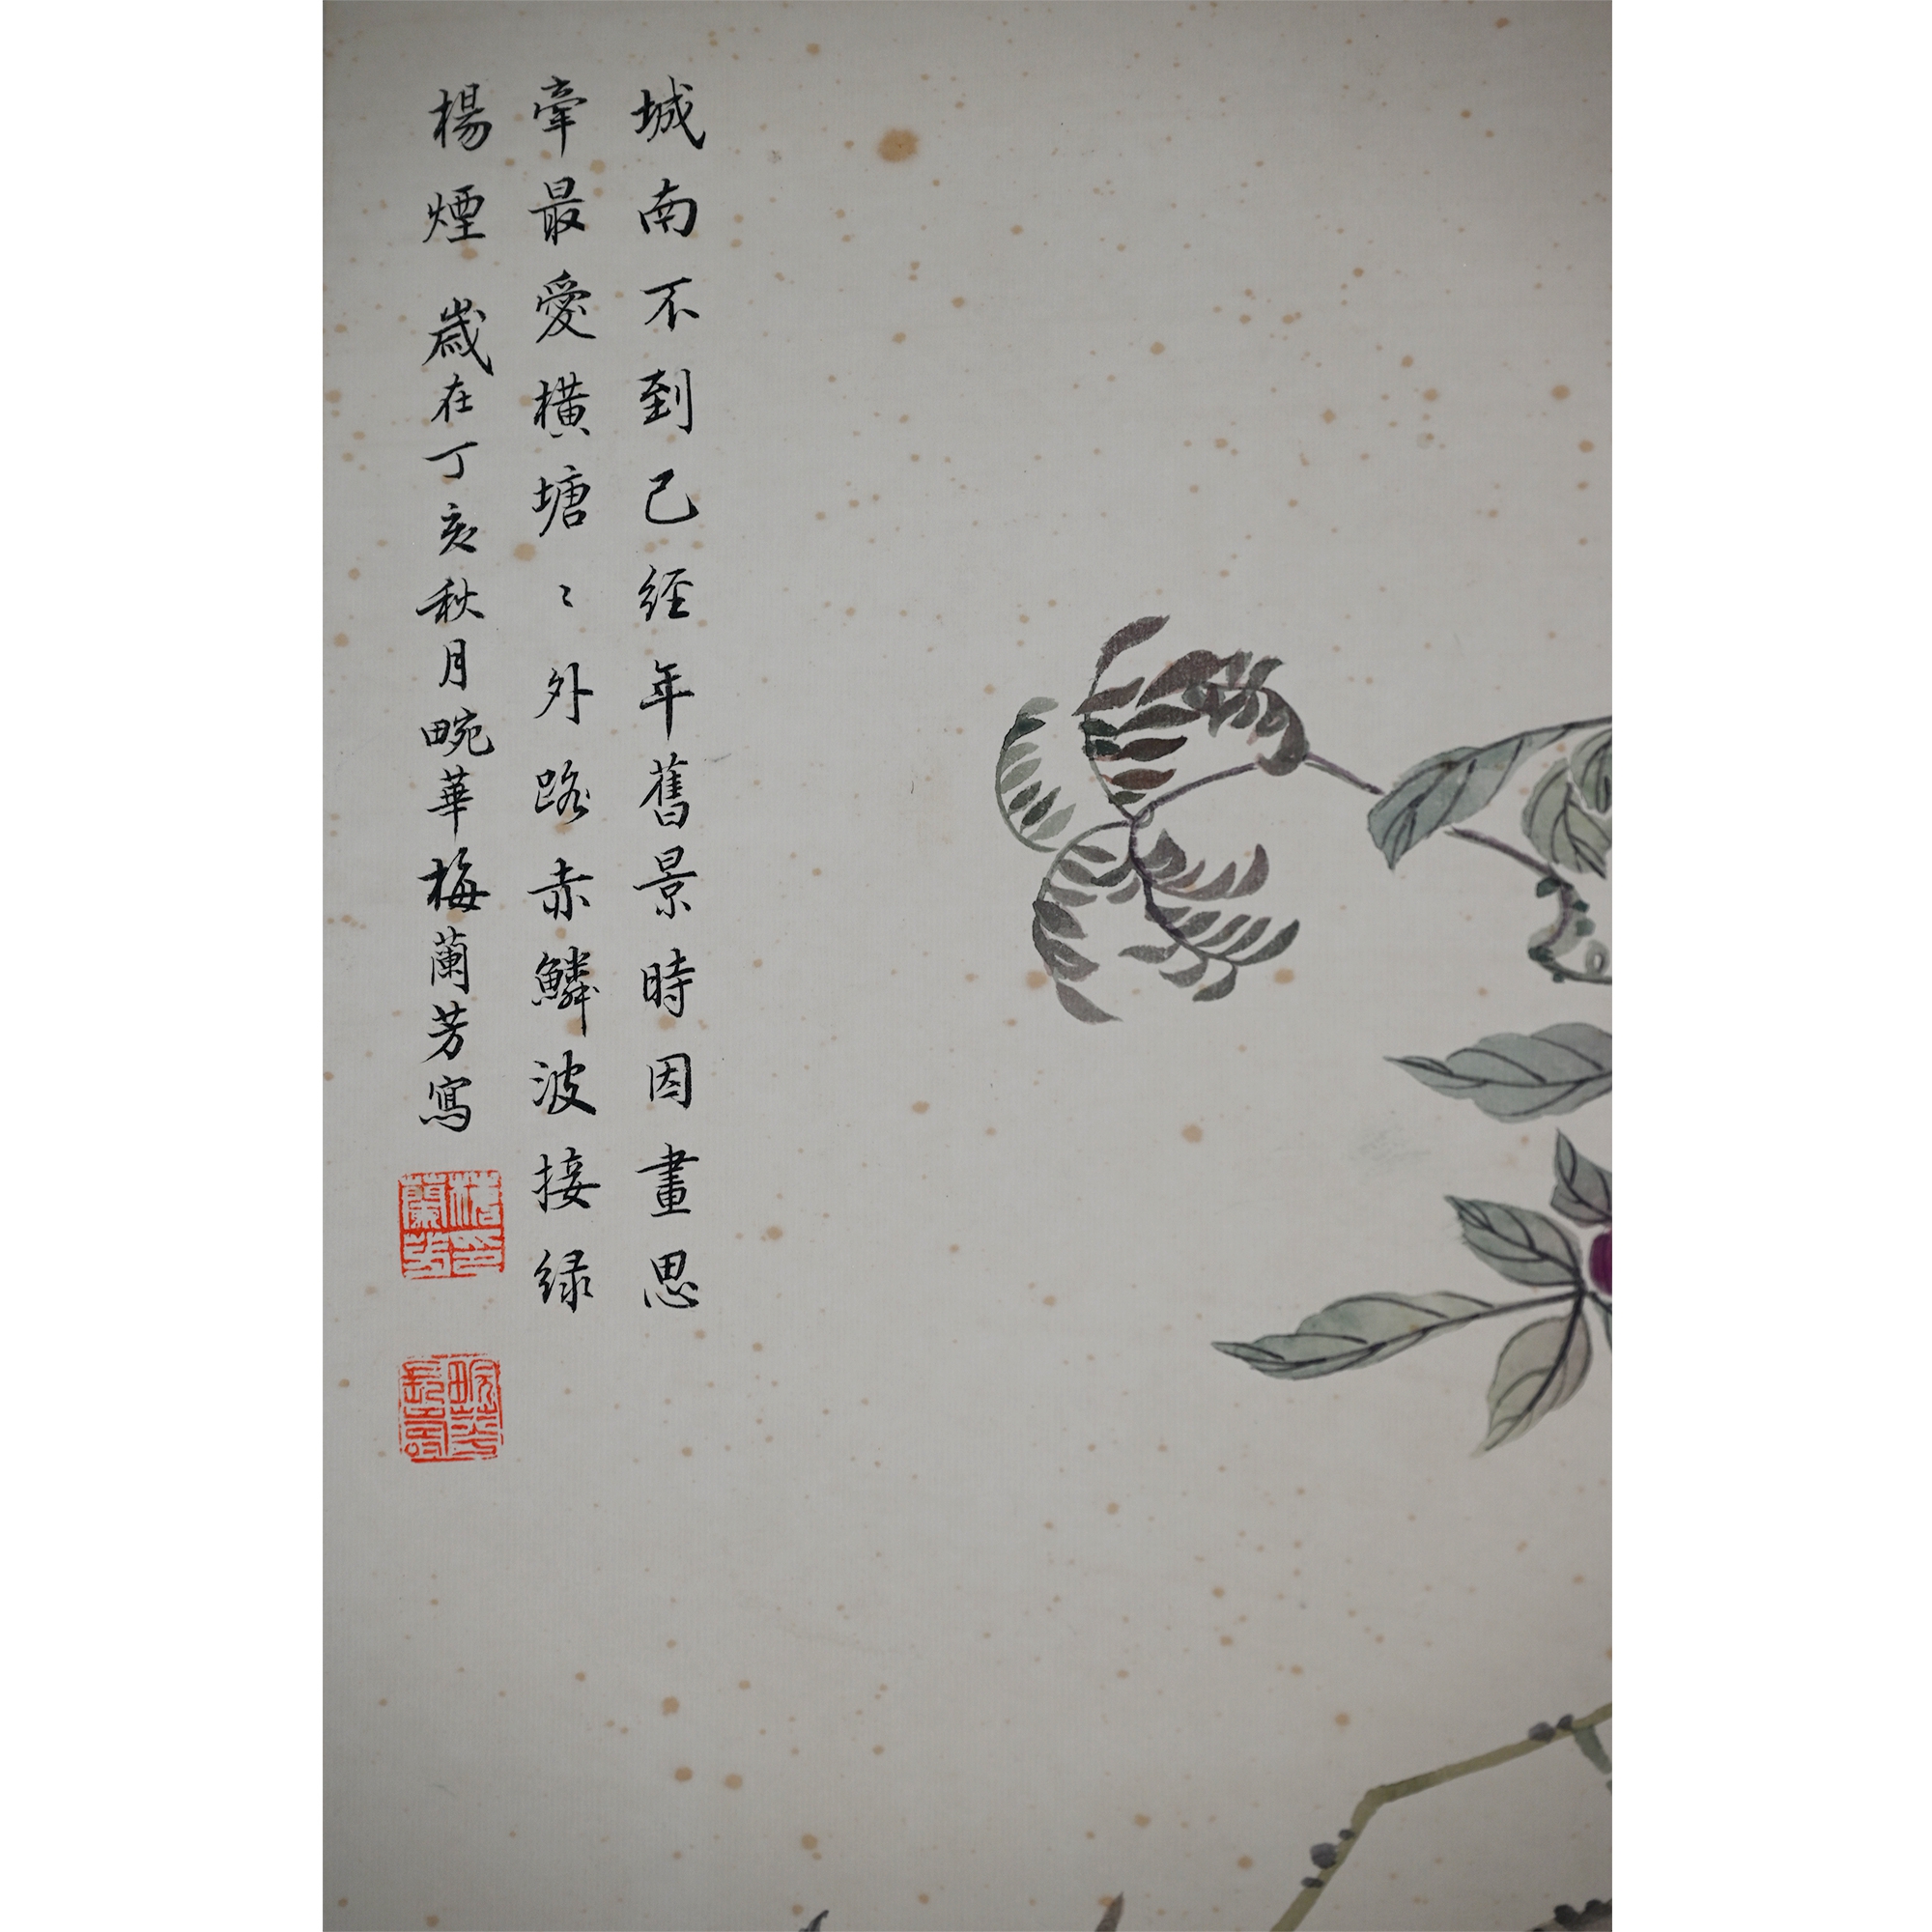 城南不到已經年舊景時因畫思
牽最愛橫塘〻外路赤鱗波接緑
楊煙 歲在丁亥秋月畹華梅蘭芳寫